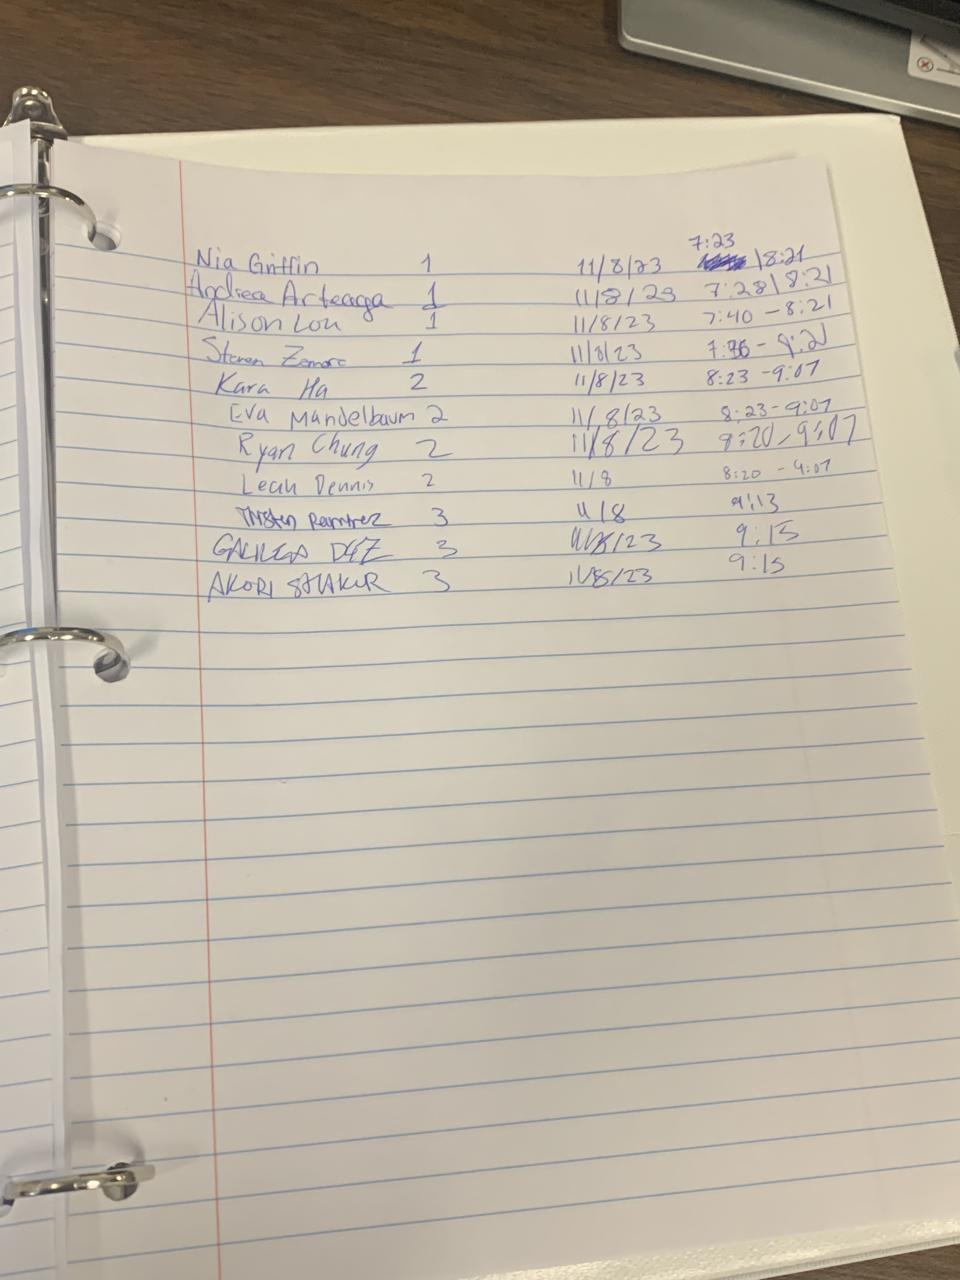 Nia Griffin 1 11/8/23 7:23 \8:21
Andrea Arteaga 1 11/8/23 7:28\8:21
Alison Lou 1 11/8/23 7:40 - 8:21
Steven 1 11/8/23 - 8:21
Kara Ha 2 11/8/23 8:23 - 9:07
Eva Mandelbaum 2 11/8/23 8:23 - 9:07
Ryan Chung 2 11/8/23 8:20 - 9:07
Leah Dennis 2 11/8 8:20 - 9:07
Ramirez 3 11/8 9:13
3 11/8/23 9:15
AKORI 3 11/8/23 9:15